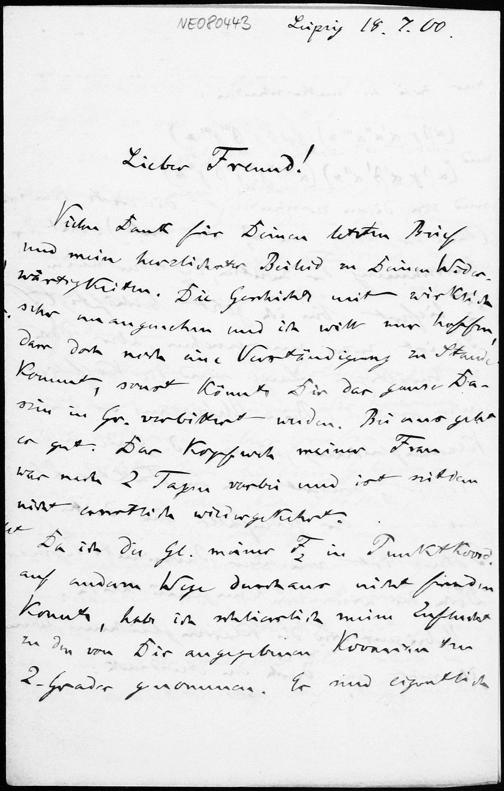 NEO80443
Leipzig 18. 7. 00.
Lieber Freund!
Vielen Dank für Deinen letzten Brief
und mein herzlichstes Beileid zu Deinen Wider-
wärtigkeiten. Die Geschichte ist wirklich
sehr unangenehm und ich will nur hoffen,
dass doch noch eine Verständigung zu Stande
kommt, sonst könnte Dir das ganze Da-
sein in Gr. verbittert werden. Bei uns geht
es gut. Das Kopfweh meiner Frau
war nach 2 Tagen vorbei und ist seitdem
nicht ernstlich wiedergekehrt.
Da ich die Gl. meiner F₂ in Punktkoord.
auf anderm Wege durchaus nicht finden
konnte, habe ich schliesslich meine Zuflucht
zu den von Dir angegebenen Kovarianten
2-Grades genommen. Es sind eigentlich